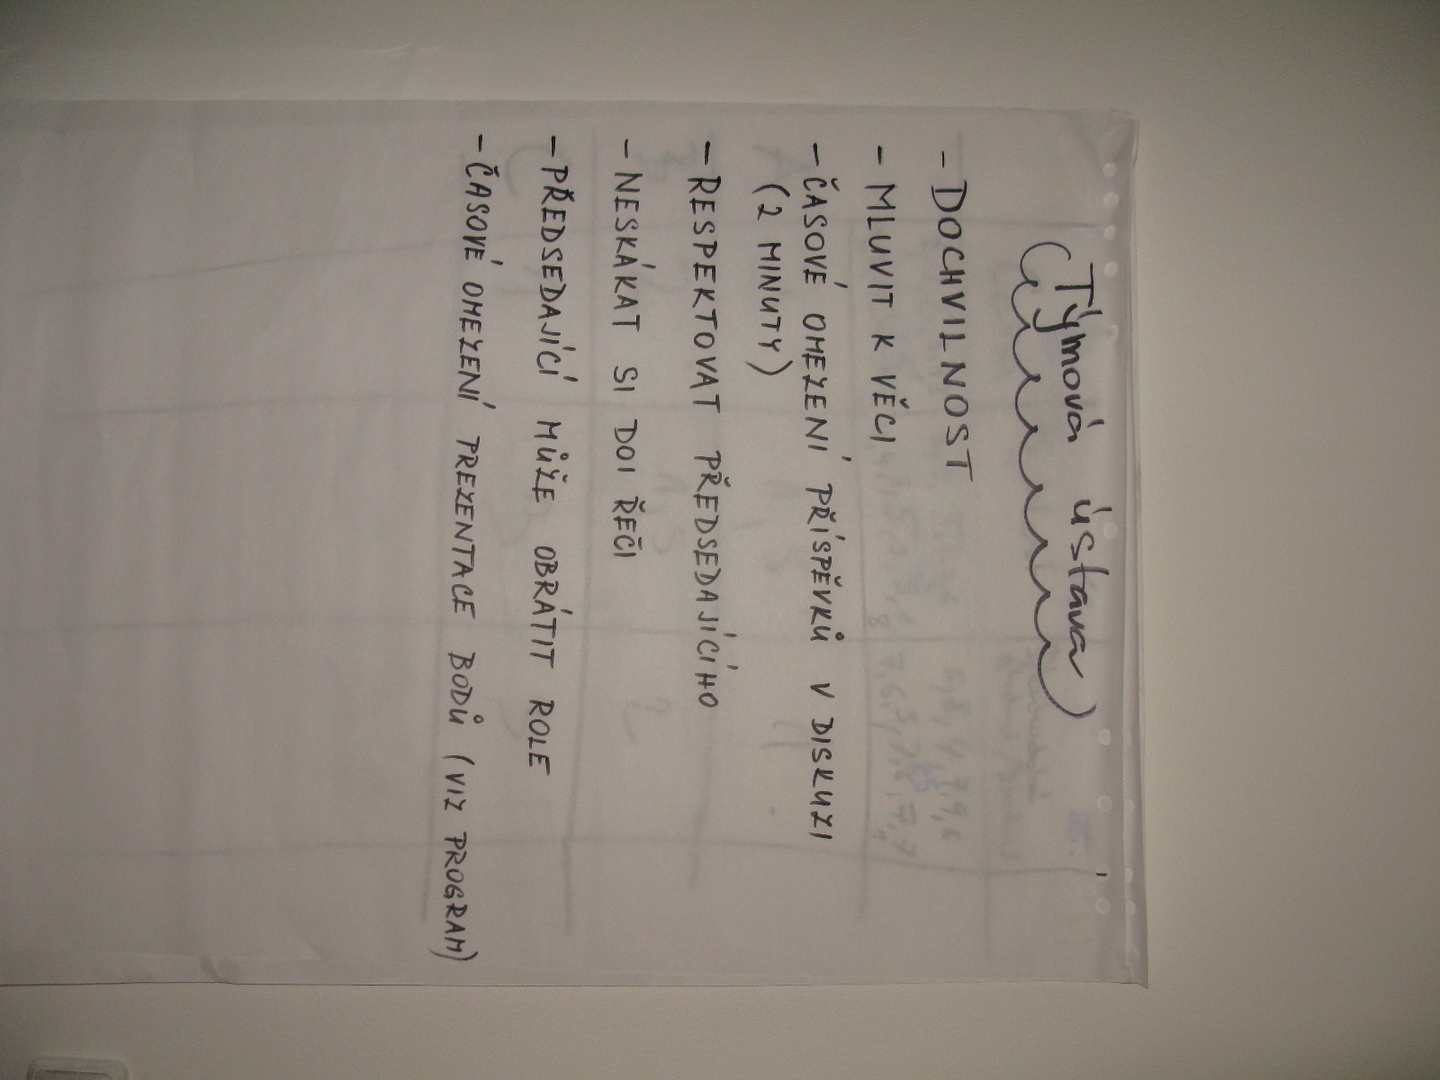 Týmová ústava
- DOCHVILNOST
- MLUVIT K VĚCI
- ČASOVÉ OMEZENÍ PŘÍSPĚVKŮ V DISKUZI
(2 MINUTY)
- RESPEKTOVAT PŘEDSEDAJÍCÍHO
- NESKÁKAT SI DO ŘEČI
- PŘEDSEDAJÍCÍ MŮŽE OBRÁTIT ROLE
- ČASOVÉ OMEZENÍ PREZENTACE BODŮ (VIZ PROGRAM)